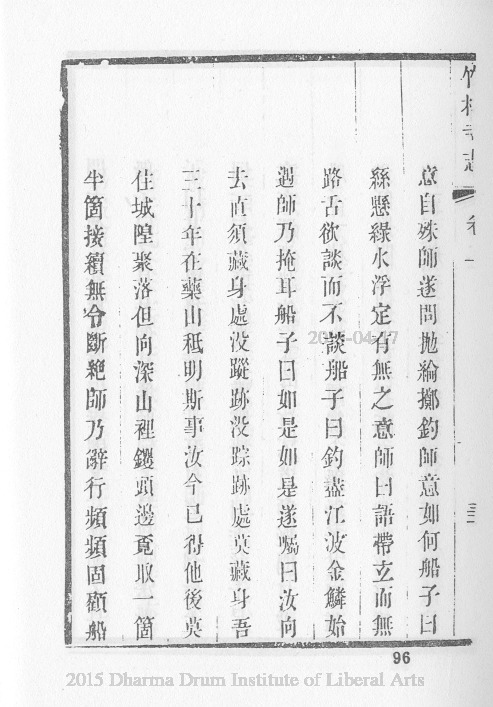 竹林寺志 卷一 三
意自殊師遂問拋綸擲釣師意如何船子曰
絲懸綠水浮定有無之意師曰語帶玄而無
路舌欲談而不談船子曰釣盡江波金鱗始
遇師乃掩耳船子曰如是如是遂囑曰汝向
去直須藏身處没蹤跡没踪跡處莫藏身吾
三十年在藥山秪明斯事汝今已得他後莫
住城隍聚落但向深山裡钁頭邊覔取一箇
半箇接續無令斷絕師乃辭行頻頻囬顧船
96
2015 Dharma Drum Institute of Liberal Arts